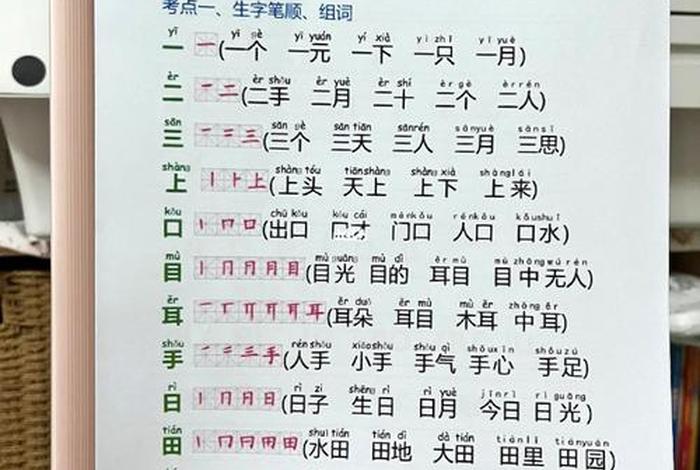 考点一、生字笔顺、组词
yī yí gè yì yuán yí xià yì zhī yí yuè
一 一(一个 一元 一下 一只 一月)
èr èr shǒu èr yuè èr shí èr gè èr rén
二 一 二(二手 二月 二十 二个 二人)
sān sān gè sān tiān sān rén sān yuè sān sī
三 一 二 三(三个 三天 三人 三月 三思)
shàng shàng tóu tiān shàng shàng xià shàng lái
上 丨 卜 上(上头 天上 上下 上来)
kǒu chū kǒu kǒu cái mén kǒu rén kǒu kǒu shuǐ
口 丨 冂 口(出口 口才 门口 人口 口水)
mù mù guāng mù dì ěr mù mù zhōng wú rén
目 丨 冂 月 月 目(目光 目的 耳目 目中无人)
ěr ěr duǒ ěr mù mù ěr zhōng ěr
耳 一 丅 丌 耳(耳朵 耳目 木耳 中耳)
shǒu rén shǒu xiǎo shǒu shǒu qì shǒu xīn shǒu zú
手 一 二 三 手(人手 小手 手气 手心 手足)
rì rì zi shēng rì rì yuè jīn rì rì guāng
日 丨 冂 月 日(日子 生日 日月 今日 日光)
tián shuǐ tián tián dì dà tián tián lǐ tián yuán
田 丨 冂 冃 田 田(水田 田地 大田 田里 田园)